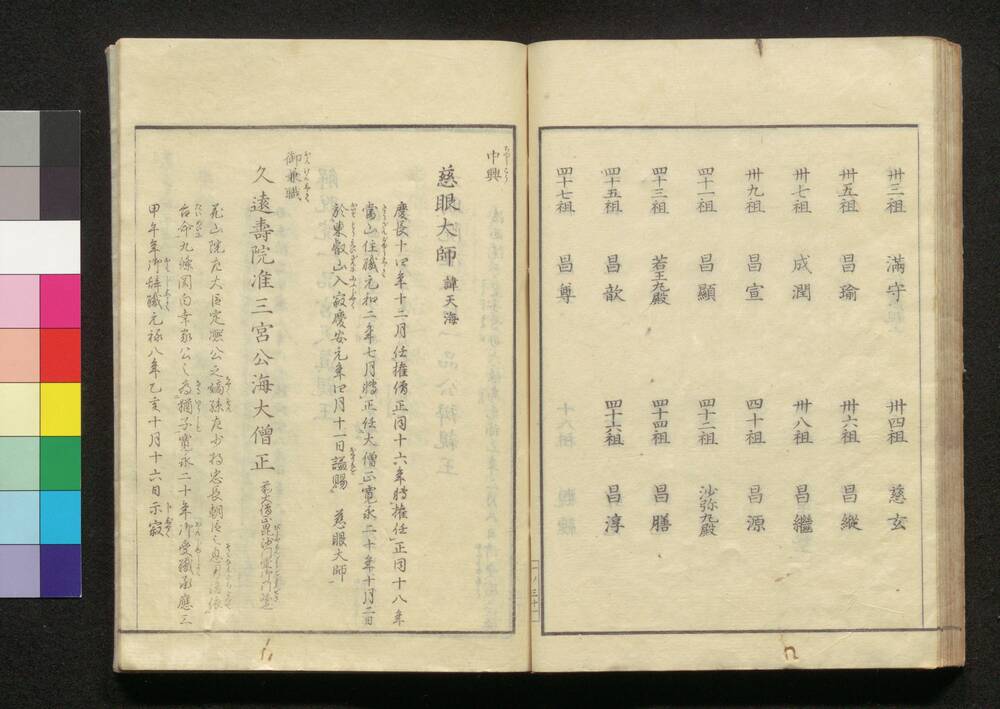 丗三祖 滿守
丗四祖 慈玄
丗五祖 昌瑜
丗六祖 昌縱
丗七祖 成潤
丗八祖 昌繼
丗九祖 昌宣
四十祖 昌源
四十一祖 昌顯
四十二祖 沙弥丸殿
四十三祖 若王丸殿
四十四祖 昌膳
四十五祖 昌歆
四十六祖 昌淳
四十七祖 昌尊
中興
慈眼大師 諱天海
慶長十四年十二月任権僧正同十六年轉権任正同十八年
當山住職元和二年七月轉正任大僧正寛永二十年十月二日
於東叡山入寂慶安元年四月十一日謚賜 慈眼大師
御兼職
久遠壽院准三宮公海大僧正
花山院左大臣定凞公之嫡孫左少将忠長朝臣之息
台命九條関白幸家公之為猶子寛永二十年御受職承應三
甲午年御辞職元禄八年乙亥十月十六日示寂